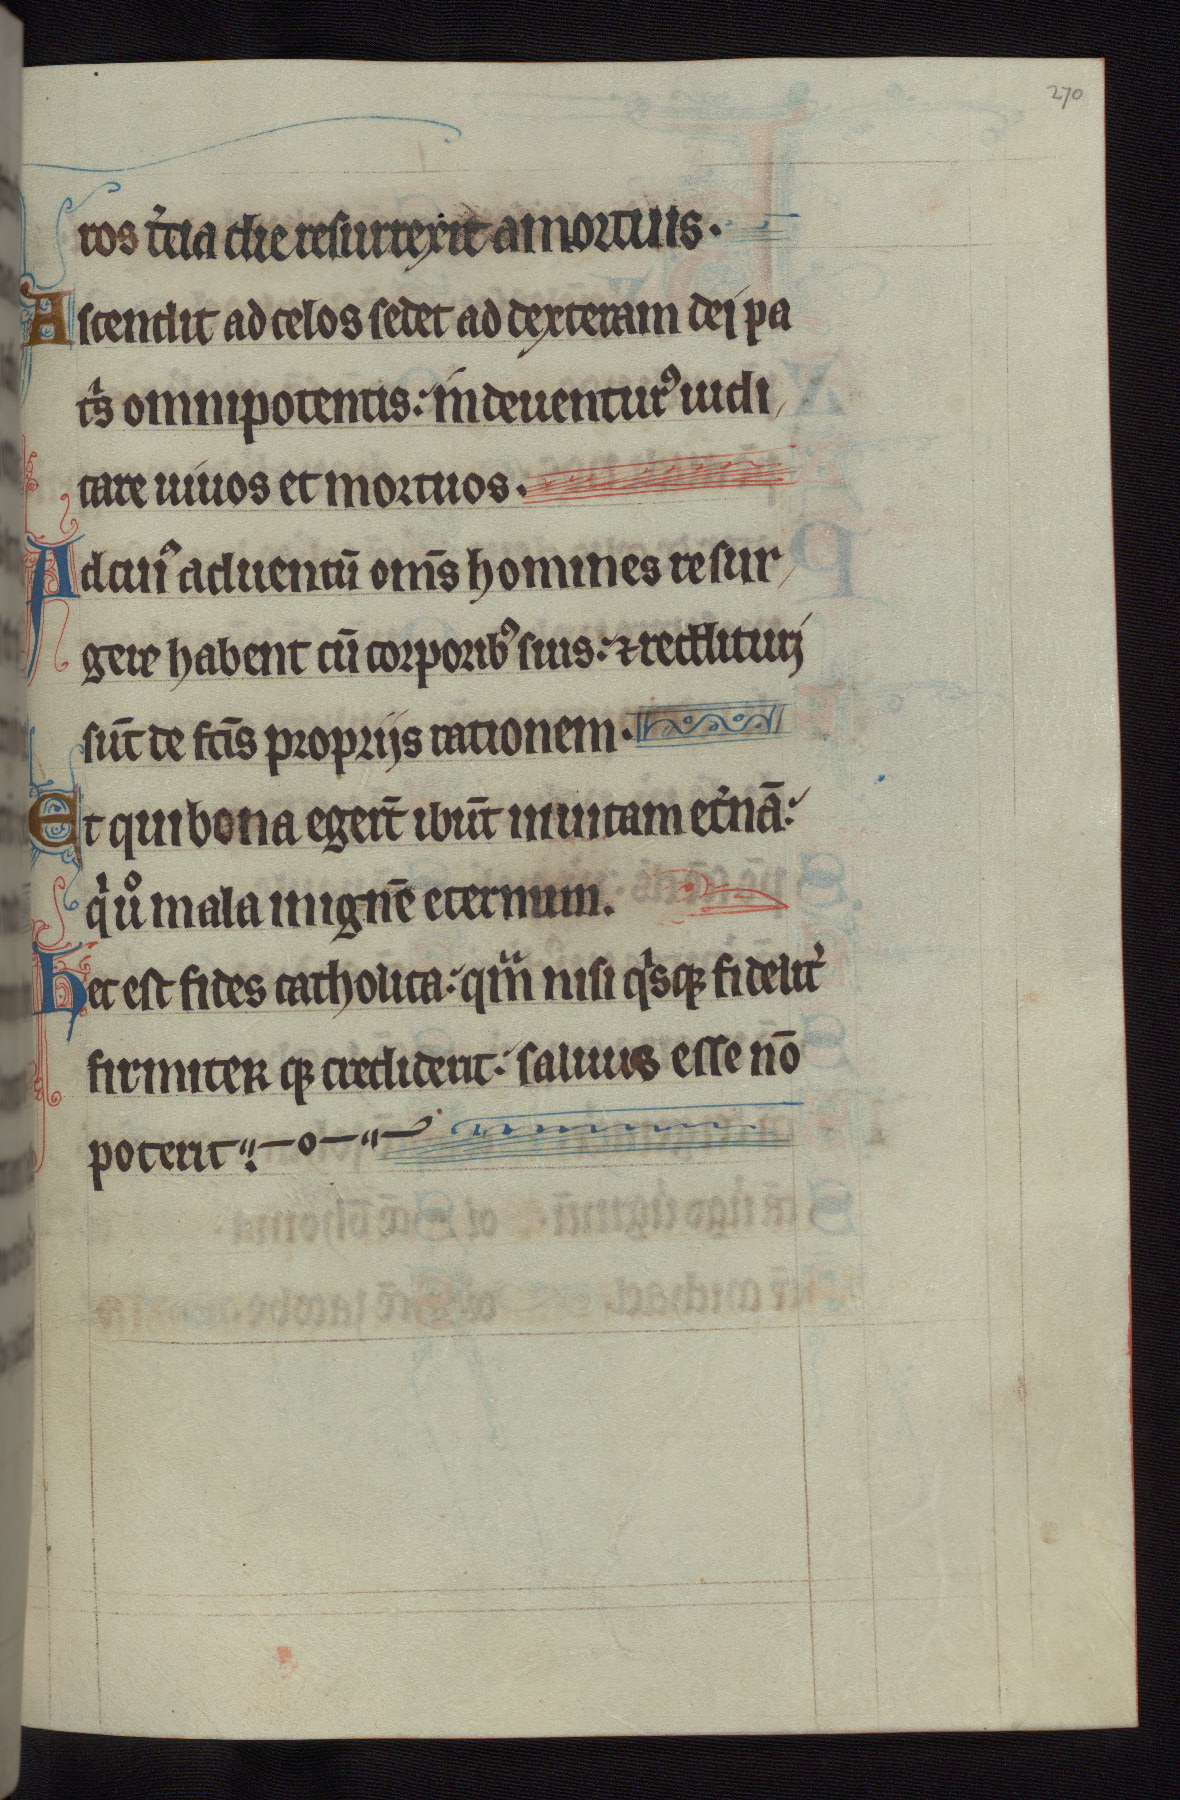 270
ros t̉cia die resurrexit a mortuis.
Ascendit ad celos sedet ad dexteram dei pa
tͥs omnipotentis: in̄de uenturꝰ iudi
care uiuos et mortuos.
Ad cuiꝰ aduentū om̄s homines resur
gere habent cū corporibꝰ suis: ⁊ reddituri
sūt de fc̄is proprijs rationem.
Et qui bona egerт̄ ibūt in uitam et̉nā:
qͥ uͦ mala in ignē eternum.
Hec est fides catholica: qm̄ nisi qͥsqꝫ fidelit̉
firmiter qꝫ crediderit: saluus esse nō
poterit